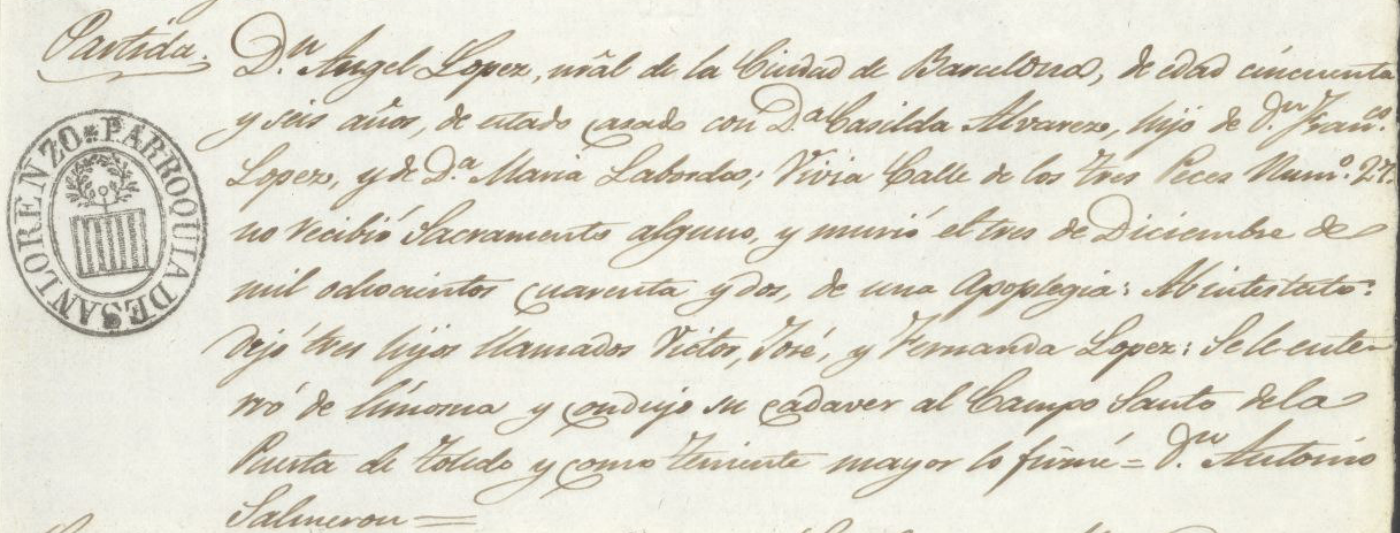 Partida.
Dn. Angel Lopez, nrãl de la Ciudad de Barcelona, de edad cincuenta
y seis años, de estado casado con D.a Casilda Alvarez, hijo de D.n Fran.co
Lopez, y de D.a Maria Laborda; Vivia Calle de los tres Peces Num.o
no recibió Sacramento alguno, y murió el tres de Diciembre de
mil ochocientos cuarenta y dos, de una Apoplegia: Abintestato:
dejó tres hijos llamados Victor, José, y Fernanda Lopez: Se le enter
rró de limosna y condujo su cadaver al Campo Santo de la
Puerta de Toledo y como Teniente mayor lo firmé = D.n Antonio
Salmeron =
PARROQUIA DE SAN LORENZO